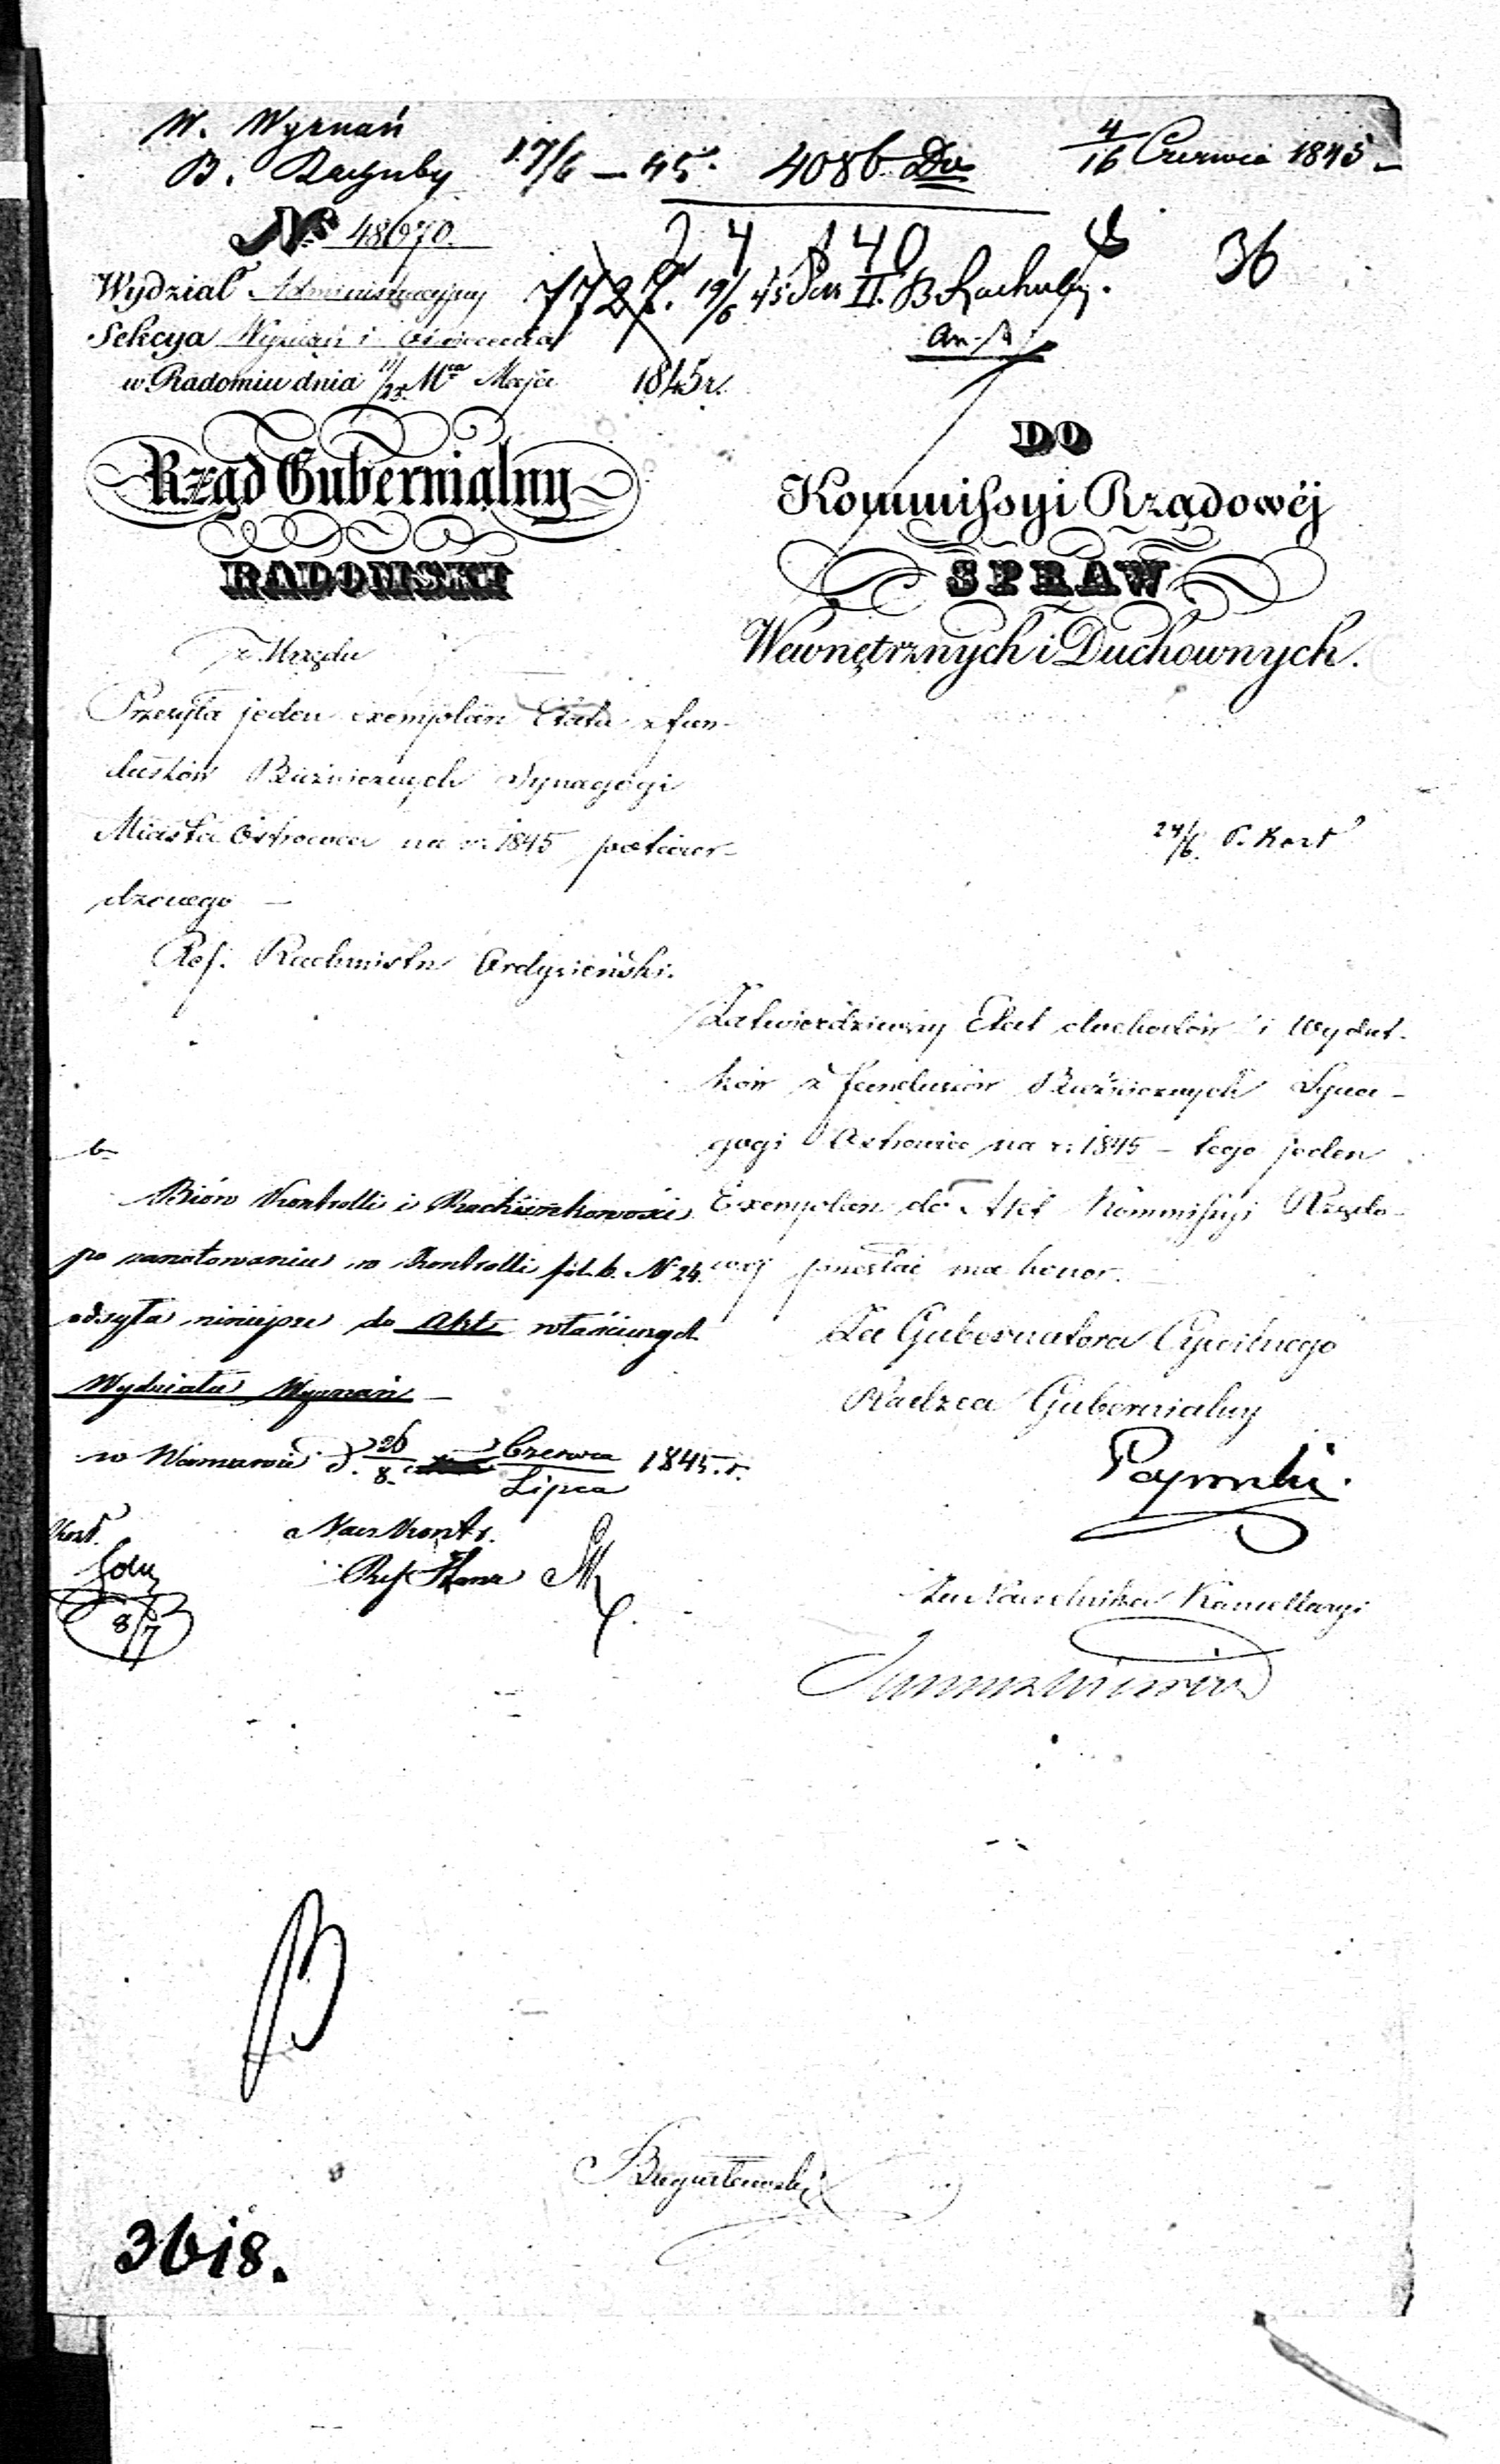 W. Wyznań
B. Rachuby 17/6 – 45. 4086 Do 4/16 Czerwca 1845 –
No 48670.
24 140 36
Wydział Administracyjny 7727. 19/6 45 Sek II. B Rachuby.
Sekcya Wyznań i Oświecenia
w Radomiu dnia 11/23 Mca Maja 1845 r.
Rząd Gubernialny
RADOMSKI
DO
Kommissyi Rządowéj
SPRAW
Wewnętrznych i Duchownych.
z Urzędu
Przesyła jeden exemplarz Etatu z fun-
duszów Bużniczych Synagogi
Miasta Ostrowca na r. 1845 potwier-
dzonego –
24/6.
Ref. Rachmistrz
Zatwierdziwszy Etat dochodów i Wydat-
ków z funduszów Bużniczych Syna-
gogi Ostrowiec na r: 1845 – tego jeden
Exemplarz do Akt Kommissyi Rządo-
wej przesłać ma honor.
Za Gubernatora Cywilnego
Radzca Gubernialny
Za Naczelnika Kancellaryi
Bióro Kontrolli i Rachunkowości
po zanotowaniu w Kontrolli fol. 6. N 24.
odsyła niniejsze do Akt właściwych
Wydziału Wyznań –
w Warszawie d. 26/8 Czerwca/Lipca 1845. r.
Nacz Kontr.
8/7
3618.